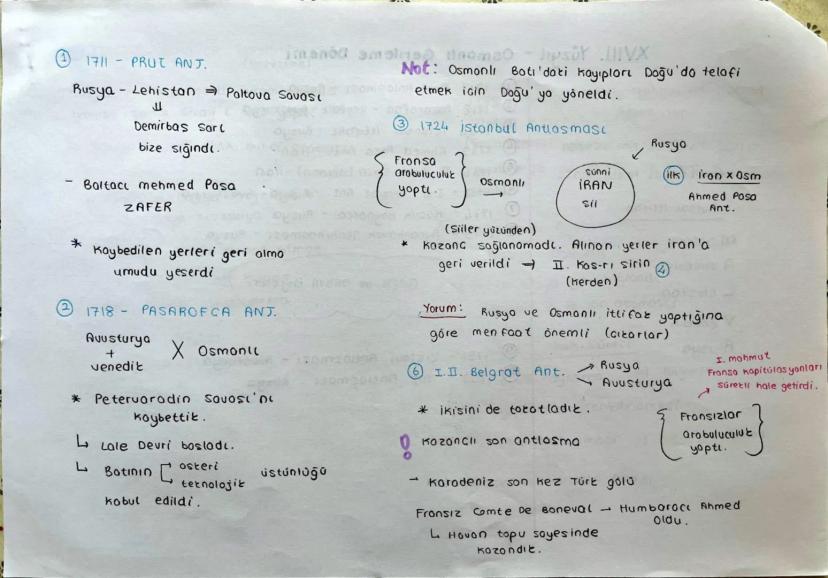 ① 1711 - PRUT ANJ.
Rusya - Lehistan ⇒ Poltova Savası
⇓
Demirbas sarl
bize sığındı.
- Baltacı mehmed Pasa
ZAFER
* Kaybedilen yerleri geri alma
umudu yeserdi
② 1718 - PASAROFCA ANJ.
Avusturya
+
venedik
X Osmanlı
* Petervaradin Savası'nı
kaybettik.
↳ Lale Devri basladı.
↳ Batının
askeri
teknolojik
üstünlüğü
kabul edildi.
Not: Osmanlı Batı'daki kayıpları Doğu'da telafi
etmek icin Doğu'ya yöneldi.
③ 1724 istanbul Antlasması
Fransa
arabuluculuk
yaptı.
Osmanlı
→
sünni
iRAN
sii
Rusya
ilk
iran x Osm
Ahmed Pasa
Ant.
(siiler yüzünden)
* Kazanc sağlanamadı. Alınan yerler iran'a
geri verildi → II. Kas-rı sirin ④
(kerden)
Yorum: Rusya ve Osmanlı ittifak yaptığına
göre menfaat önemli (cıkarlar)
⑥ I.II. Belgrat Ant.
→ Rusya
→ Avusturya
I. mahmut
Fransa kapitülasyonları
sürekli hale getirdi.
* ikisini de tokatladık.
Fransızlar
arabuluculuk
yaptı.
! Kazanclı son antlasma
- Karadeniz son kez Türk gölü
Fransız Comte De Boneval → Humbaracı Ahmed
oldu.
↳ Havan topu sayesinde
kazandık.